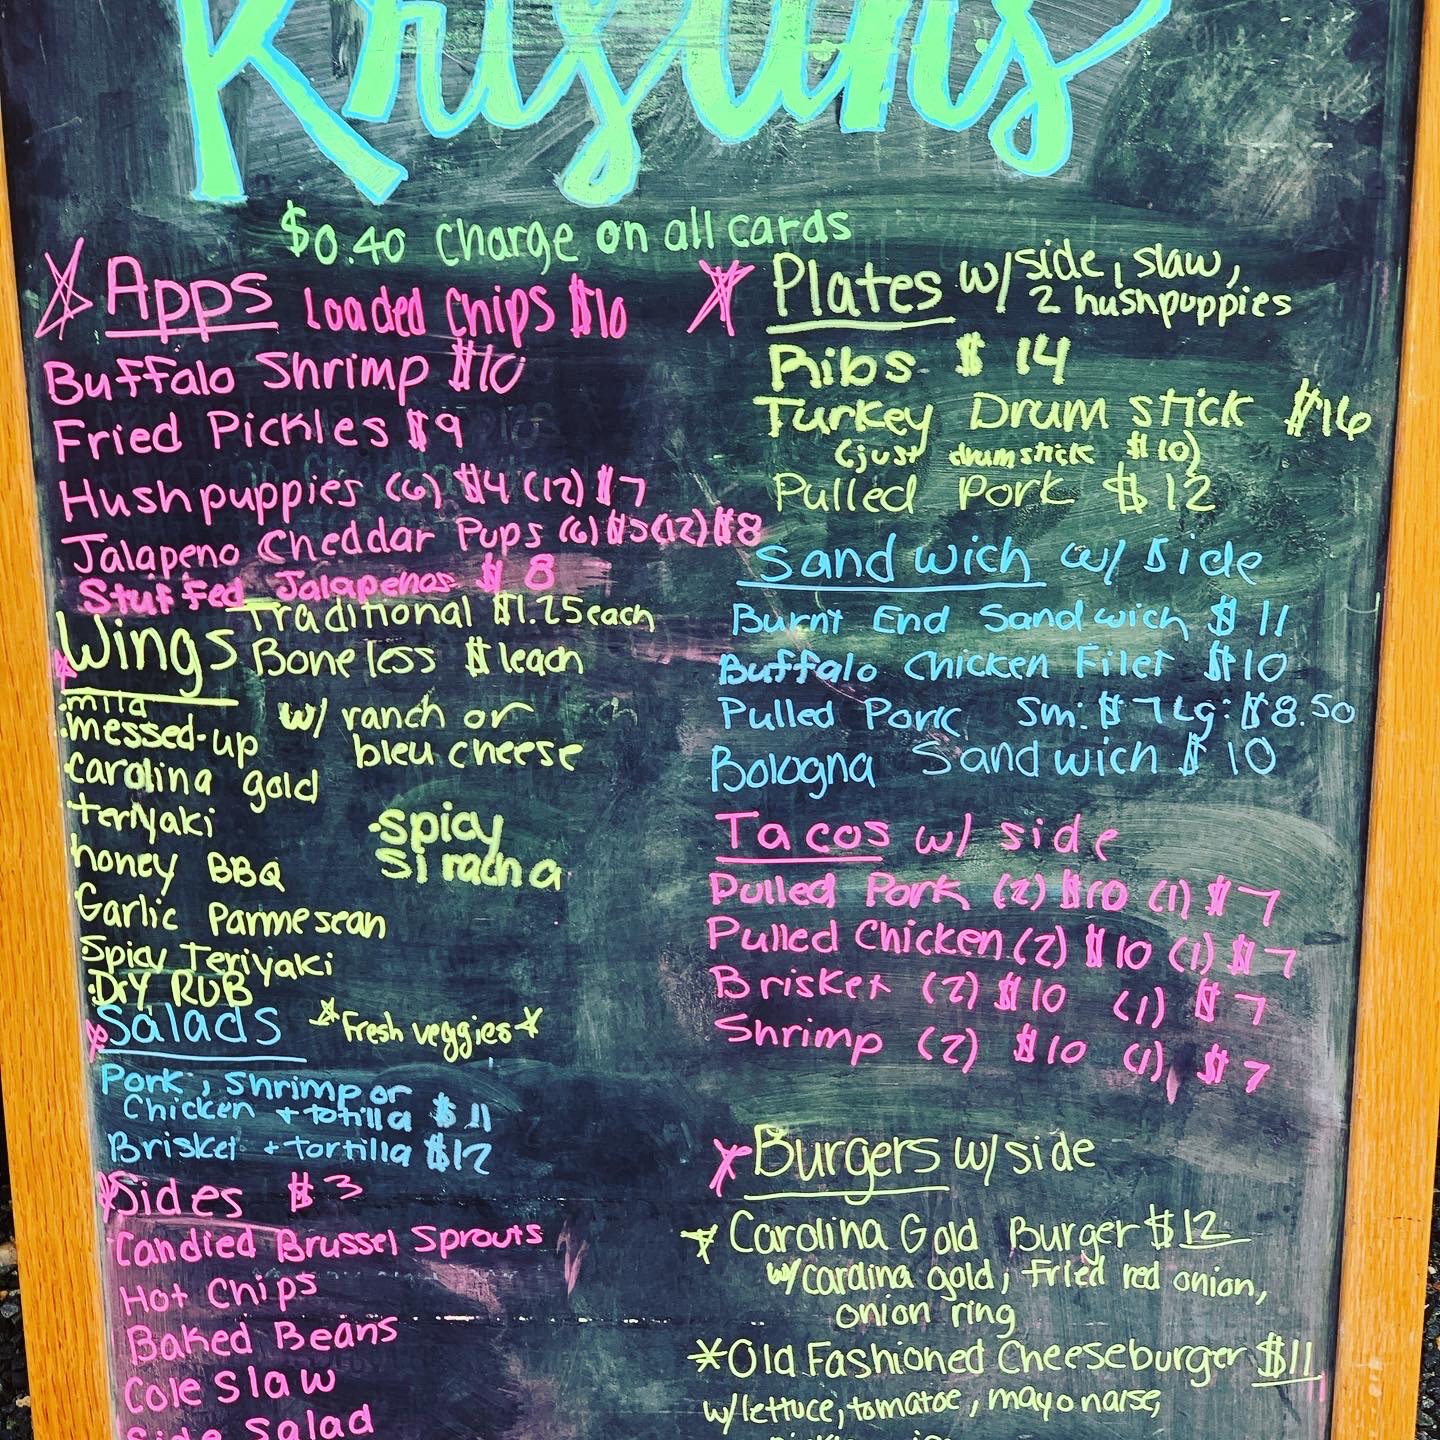 Khristin's
$0.40 charge on all cards
Apps Loaded Chips $10
Buffalo Shrimp $10
Fried Pickles $9
Hushpuppies (6) $4 (12) $7
Jalapeno Cheddar Pups (6) $5 (12) $8
Stuffed Jalapenos $8
Wings Traditional $1.25 each
Boneless $1 each
w/ ranch or
bleu cheese
·mild
·messed-up
·carolina gold
·teriyaki
honey BBQ
Garlic Parmesean
·Spicy Teriyaki
·Dry RUB
·spicy
siracha
Salads *Fresh veggies*
Pork, Shrimp or
Chicken + tortilla $11
Brisket + tortilla $12
Sides $3
Candied Brussel Sprouts
Hot Chips
Baked Beans
Cole Slaw
Side Salad
Plates w/ side, slaw,
2 hushpuppies
Ribs $14
Turkey Drum stick $16
(just drumstick $10)
Pulled Pork $12
Sandwich w/ Side
Burnt End Sandwich $11
Buffalo Chicken Filet $10
Pulled Pork Sm: $7 Lg: $8.50
Bologna Sandwich $10
Tacos w/ side
Pulled Pork (2) $10 (1) $7
Pulled Chicken (2) $10 (1) $7
Brisket (2) $10 (1) $7
Shrimp (2) $10 (1) $7
Burgers w/ side
*Carolina Gold Burger $12
w/ carolina gold, fried red onion,
onion ring
*Old Fashioned Cheeseburger $11
w/ lettuce, tomatoe, mayonaise,